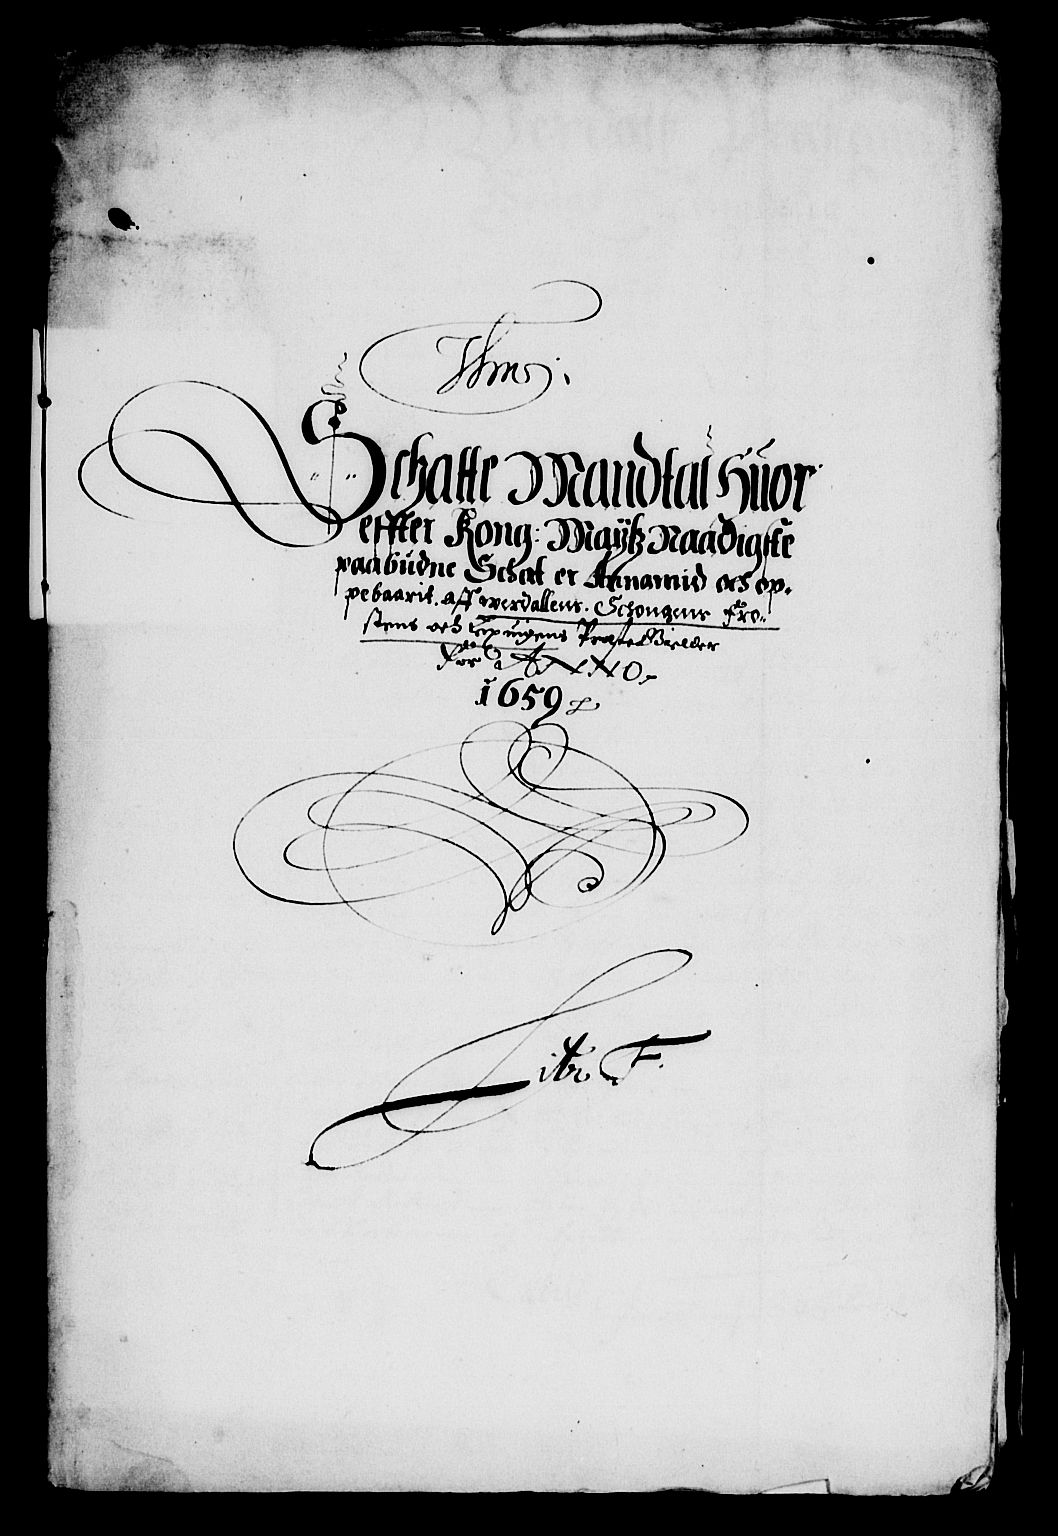 Schatte Mandtal Huor
effter Kong: Maÿtz Naadigste
paabudne Schat er Annamid och op,
pebaarit. aff werdallens. Schongens Fro,,
stens och
for ANNO,
1659
Litr F.